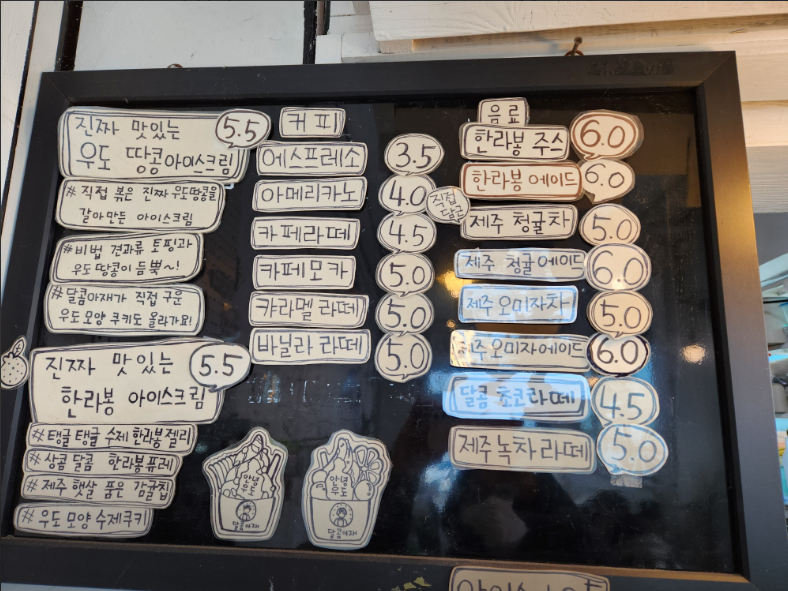 진짜 맛있는
우도 땅콩아이스크림
5.5
# 직접 볶은 진짜 우도땅콩을
갈아만든 아이스크림
#비법 견과류 토핑과
우도 땅콩이 듬뿍~!
#달콤아재가 직접 구운
우도 모양 쿠키도 올라가요!
진짜 맛있는
한라봉 아이스크림
5.5
#탱글 탱글 수제 한라봉젤리
#상콤 달콤 한라봉퓨레
# 제주 햇살 품은 감귤칩
# 우도 모양 수제쿠키
커피
에스프레소 3.5
아메리카노 4.0
카페라떼 4.5
카페모카 5.0
캬라멜 라떼 5.0
바닐라 라떼 5.0
안녕
우도
달콤아재
안녕
우도
달콤아재
음료
한라봉 주스 6.0
한라봉 에이드 6.0
직접
담근
제주 청귤차 5.0
제주 청귤에이드 6.0
제주오미자차 5.0
제주오미자에이드 6.0
달콤 초코라떼 4.5
제주녹차라떼 5.0